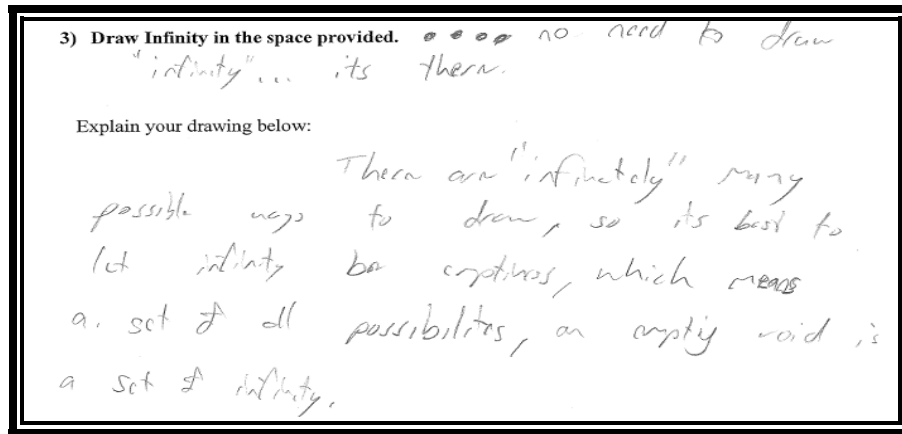 3) Draw Infinity in the space provided. no need to draw
"infinity"... its there.
Explain your drawing below:
There are "infinetely" many
possible ways to draw, so its best to
let infinity be emptiness, which means
a. set of all possibilites, an emptiy void is
a set of infinity.